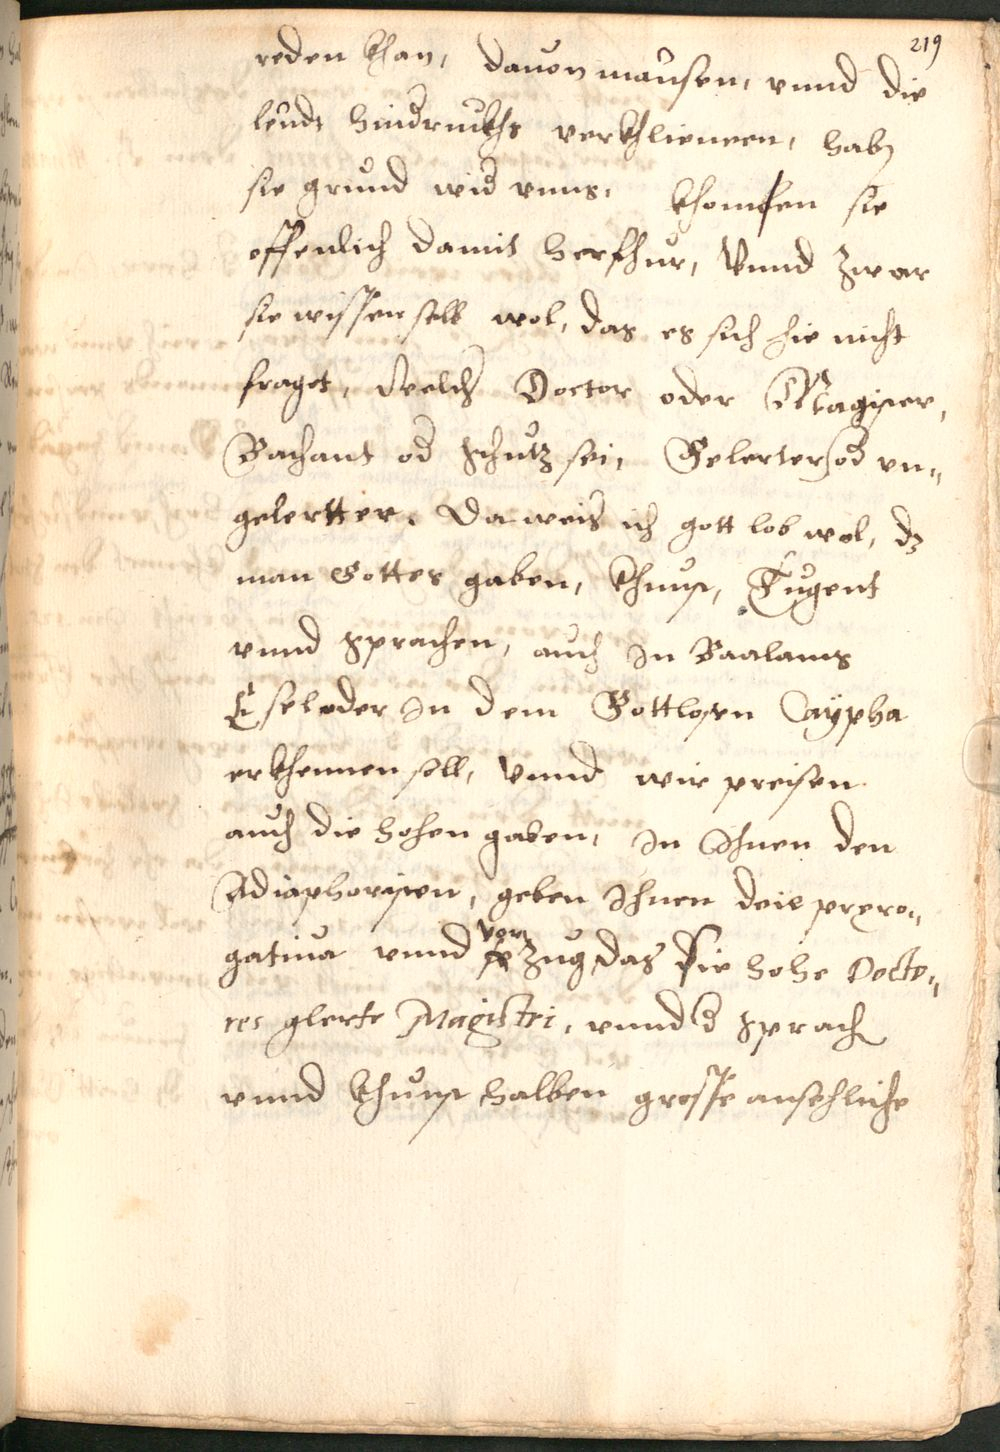 219
reden khan, dauon mausen, vnnd die
leuds hindruckhs verkhlienern, habn
sie grund wid vnns, khomen sie
offenlich damit herfhur, Vnnd zwar
sie wissen selb wol, das es sich hie nicht
fraget, Welch Doctor oder Magister,
Bachant od Schutz sei, Gelerter od vn„
gelertter. Da weis ich gott lob wol, dz
man Gottes gaben, Khunst, Tugent
vnnd Sprachen, auch In Baalams
Esel oder In dem Gottlosen Caÿpha
erkhennen soll, Vnnd wir preisen
auch die hohen gaben, In Ihnen den
Adiaphoristen, geben Ihnen die prero„
gatiua vnnd vorzug, das Sie hohe Docto„
res glerte Magistri, vnnd d Sprach
vnnd khunst halben grosse ansehliche